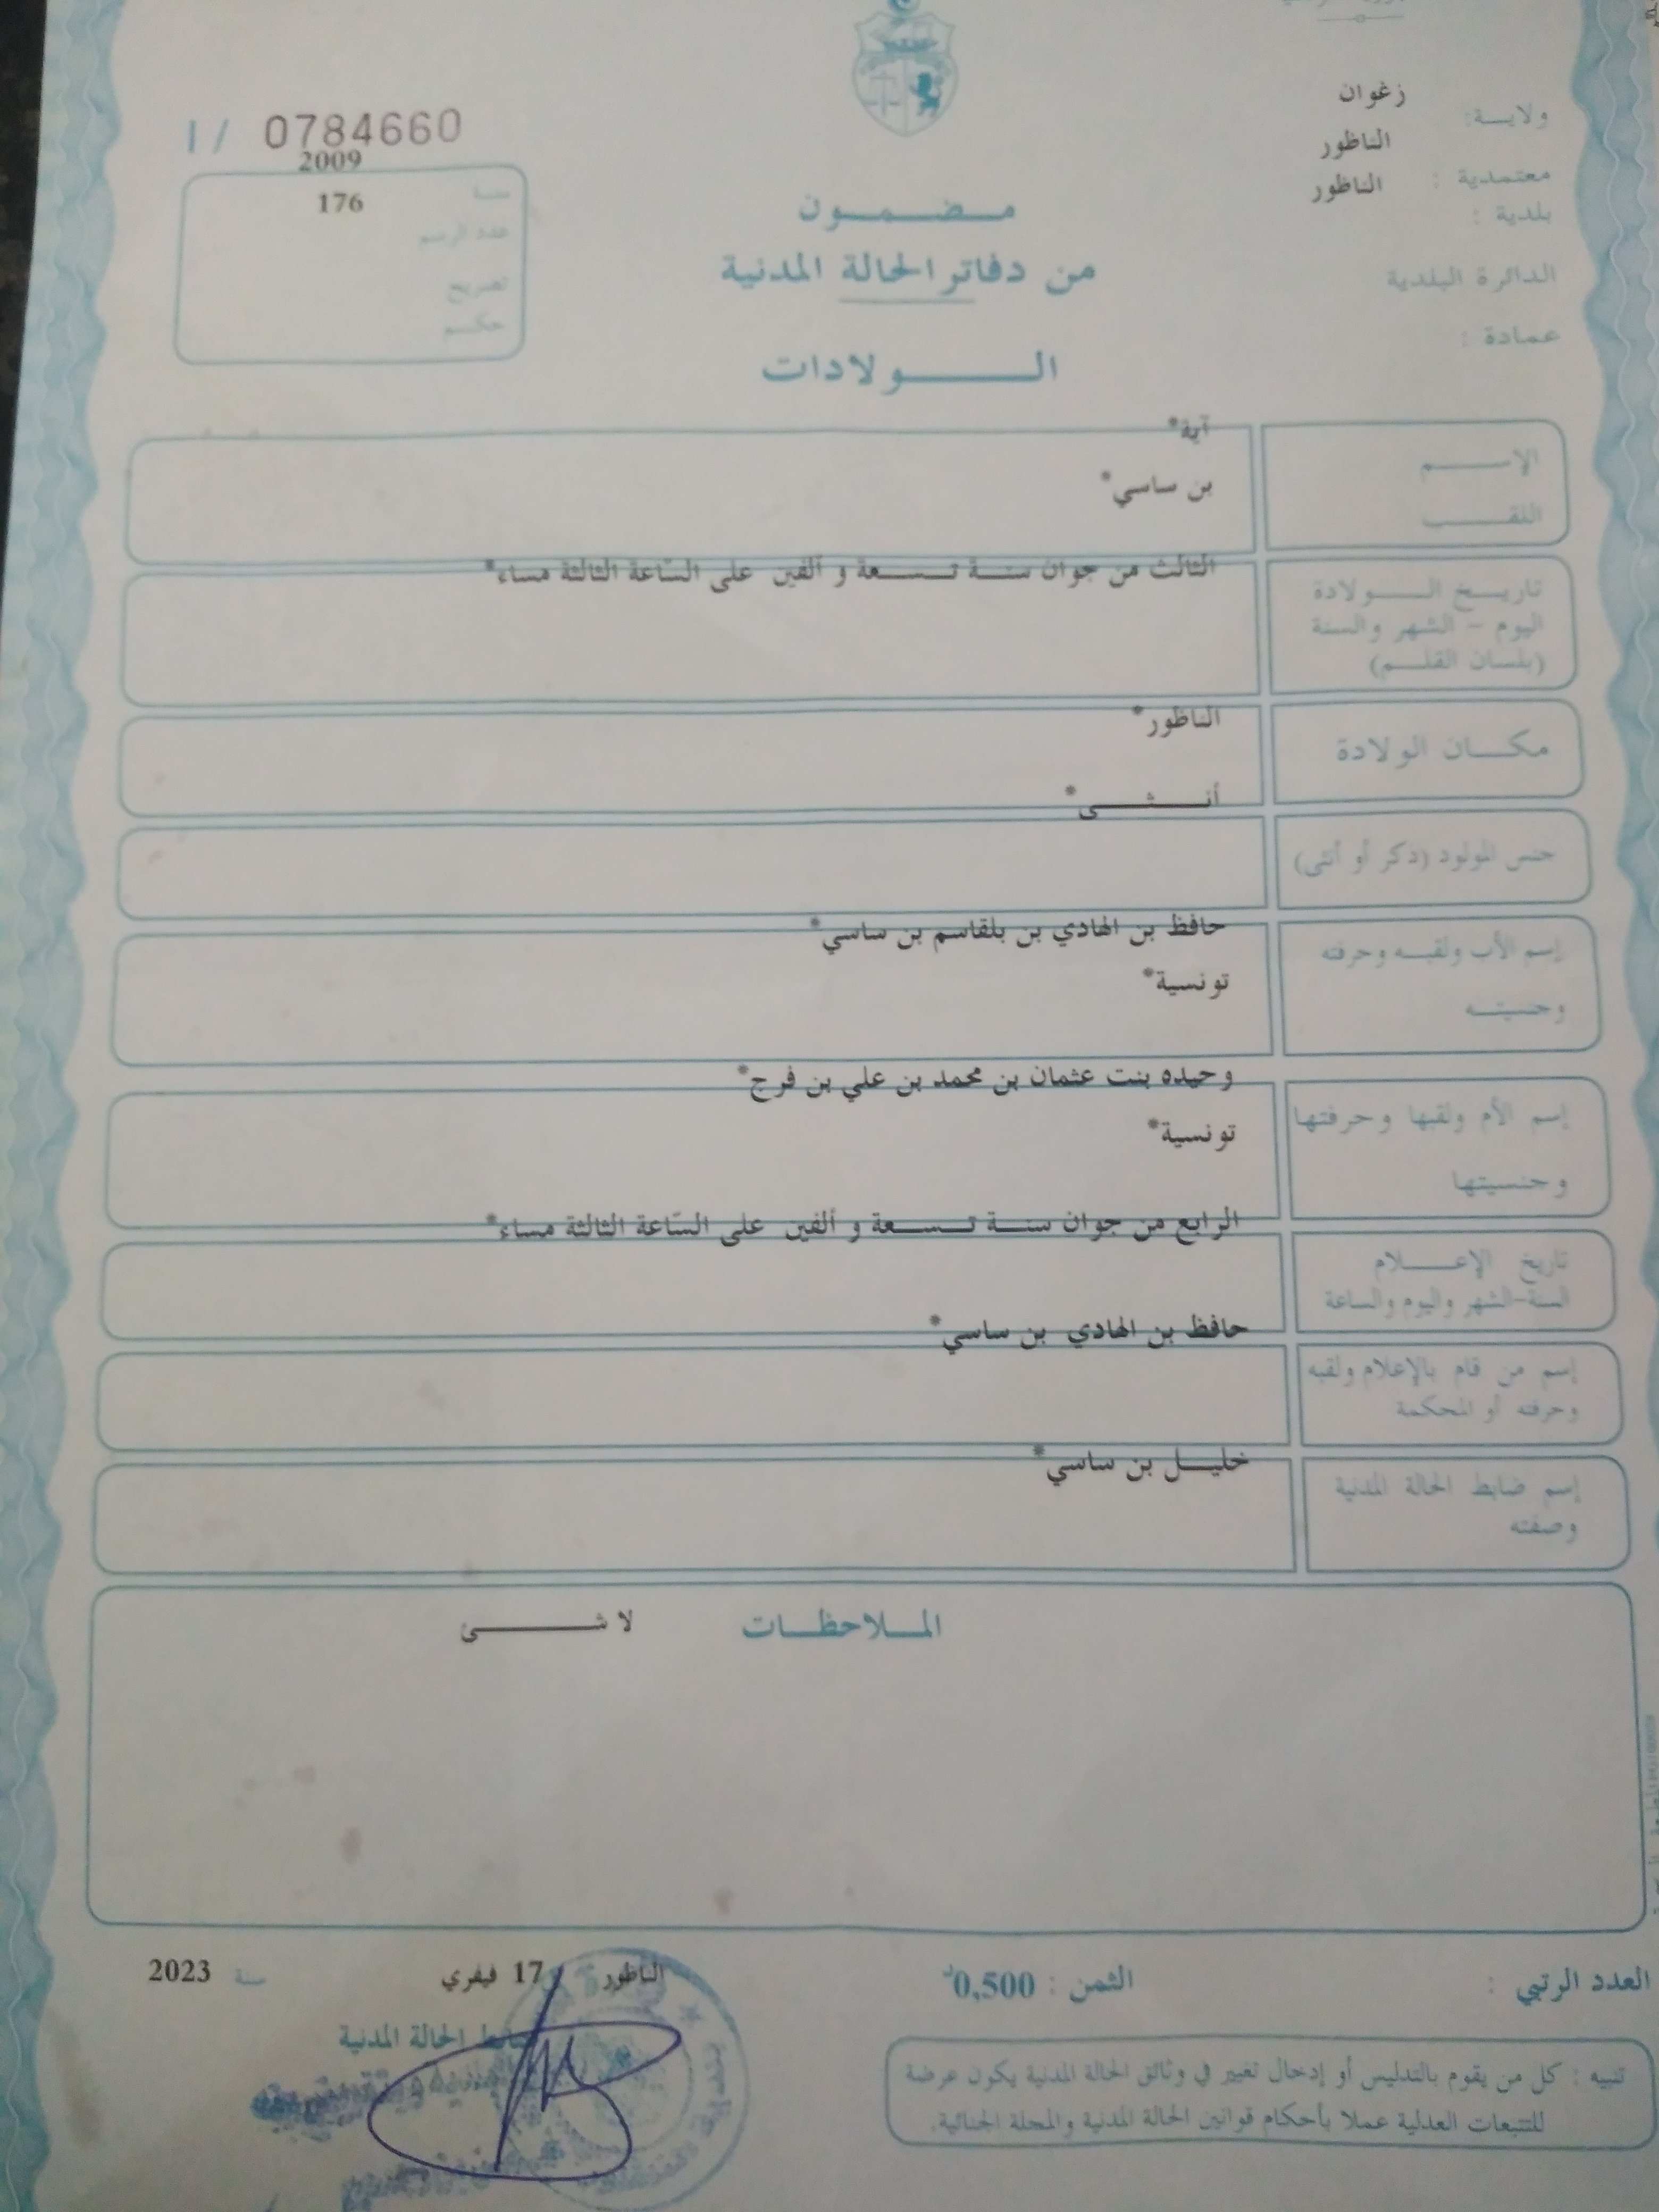 زغوان
ولايـــة:
الناظور
معتمدية :
الناظور
بلدية :
الدائرة البلدية
عمادة :
I / 0784660
2009
سنة
176
عدد الرسم
تصريح
حكــم
مـضـمـون
من دفاتر الحالة المدنية
الـــولادات
آية*
الإســـم
بن ساسي*
اللقــب
الثالث من جوان سنــة تــسـعة و ألفين على السّاعة الثالثة مساء*
تاريـخ الـــولادة
اليوم - الشهر والسنة
(بلسان القلـم)
الناظور*
مكــان الولادة
أنـــثـــى*
جنس المولود (ذكر أو أنثى)
حافظ بن الهادي بن بلقاسم بن ساسي*
إسم الأب ولقبــه وحرفته
تونسية*
وجنسيتــه
وحيده بنت عثمان بن محمد بن علي بن فرج*
إسم الأم ولقبها وحرفتها
تونسية*
وجنسيتها
الرابع من جوان سنــة تــسـعة و ألفين على السّاعة الثالثة مساء*
تاريخ الإعـــلام
السنة-الشهر واليوم والساعة
حافظ بن الهادي بن ساسي*
إسم من قام بالإعلام ولقبه
وحرفته أو المحكمة
خليــل بن ساسي*
إسم ضابط الحالة المدنية
وصفته
المــلاحظــات
لا شـــئ
العدد الرتبي :
الثمن : 0,500د
الناظور 17 فيفري سنة 2023
ضابط الحالة المدنية
تنبيه : كل من يقوم بالتدليس أو إدخال تغيير في وثائق الحالة المدنية يكون عرضة
للتتبعات العدلية عملا بأحكام قوانين الحالة المدنية والمجلة الجنائية.